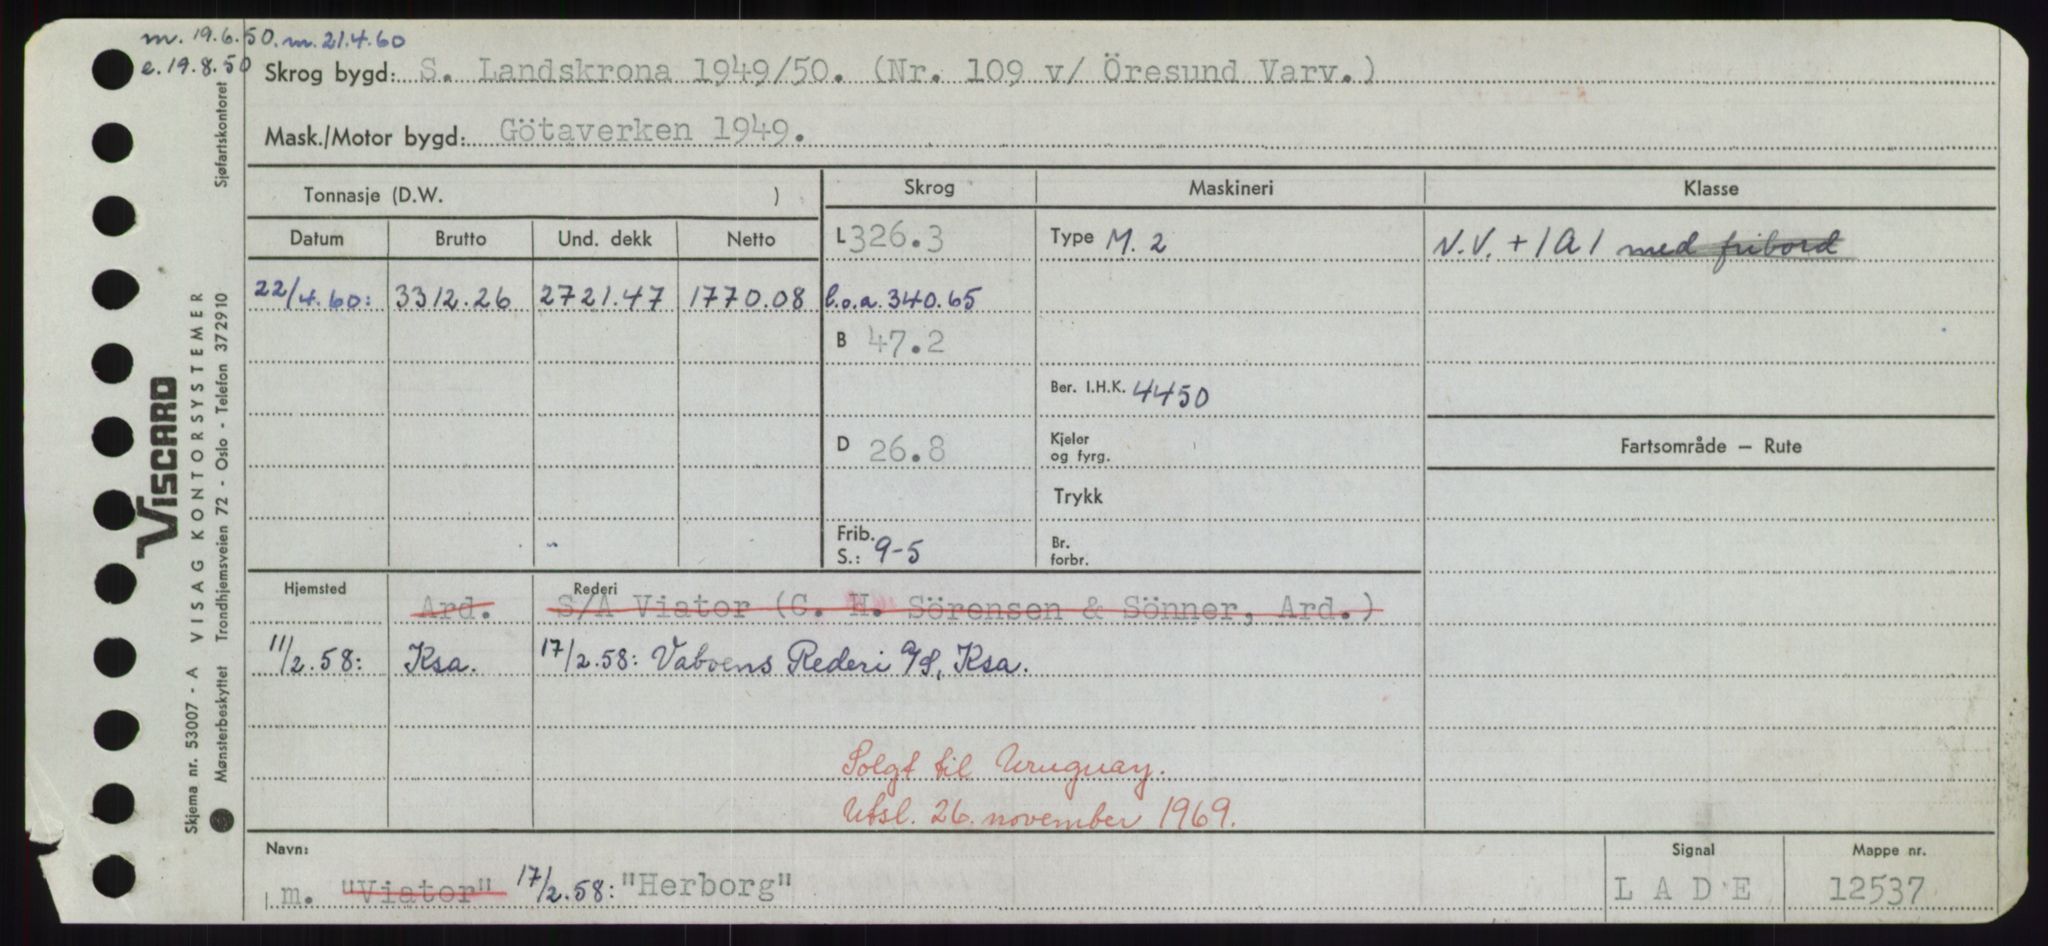 m. 19.6.50. m. 21.4.60
e. 19.8.50
Skrog bygd: S. Landskrona 1949/50. (Nr. 109 v/ Öresund Varv.)
Mask./Motor bygd: Götaverken 1949.
Tonnasje (D.W. )
Skrog
Maskineri
Klasse
Datum
Brutto
Und. dekk
Netto
L 326.3
Type M. 2
N.V. + 1A1 med fribord
22/4.60:
3312.26
2721.47
1770.08
l.o.a. 340.65
B 47.2
Ber. I.H.K. 4450
D 26.8
Kjeler
og fyrg.
Fartsområde — Rute
Trykk
Frib.
S.: 9-5
Br.
forbr.
Hjemsted
Rederi
Ard.
S/A Viator (C. H. Sörensen & Sönner, Ard.)
11/2.58:
Ksa.
17/2.58: Vaboens Rederi A/S, Ksa.
Solgt til Uruguay.
Utsl. 26. november 1969.
Navn:
Signal
Mappe nr.
m. "Viator" 17/2.58: "Herborg"
LADE
12537
VISCARD
Skjema nr. 53007 - A VISAG KONTORSYSTEMER
Mønsterbeskyttet Trondhjemsveien 72 - Oslo - Telefon 372910 Sjøfartskontoret